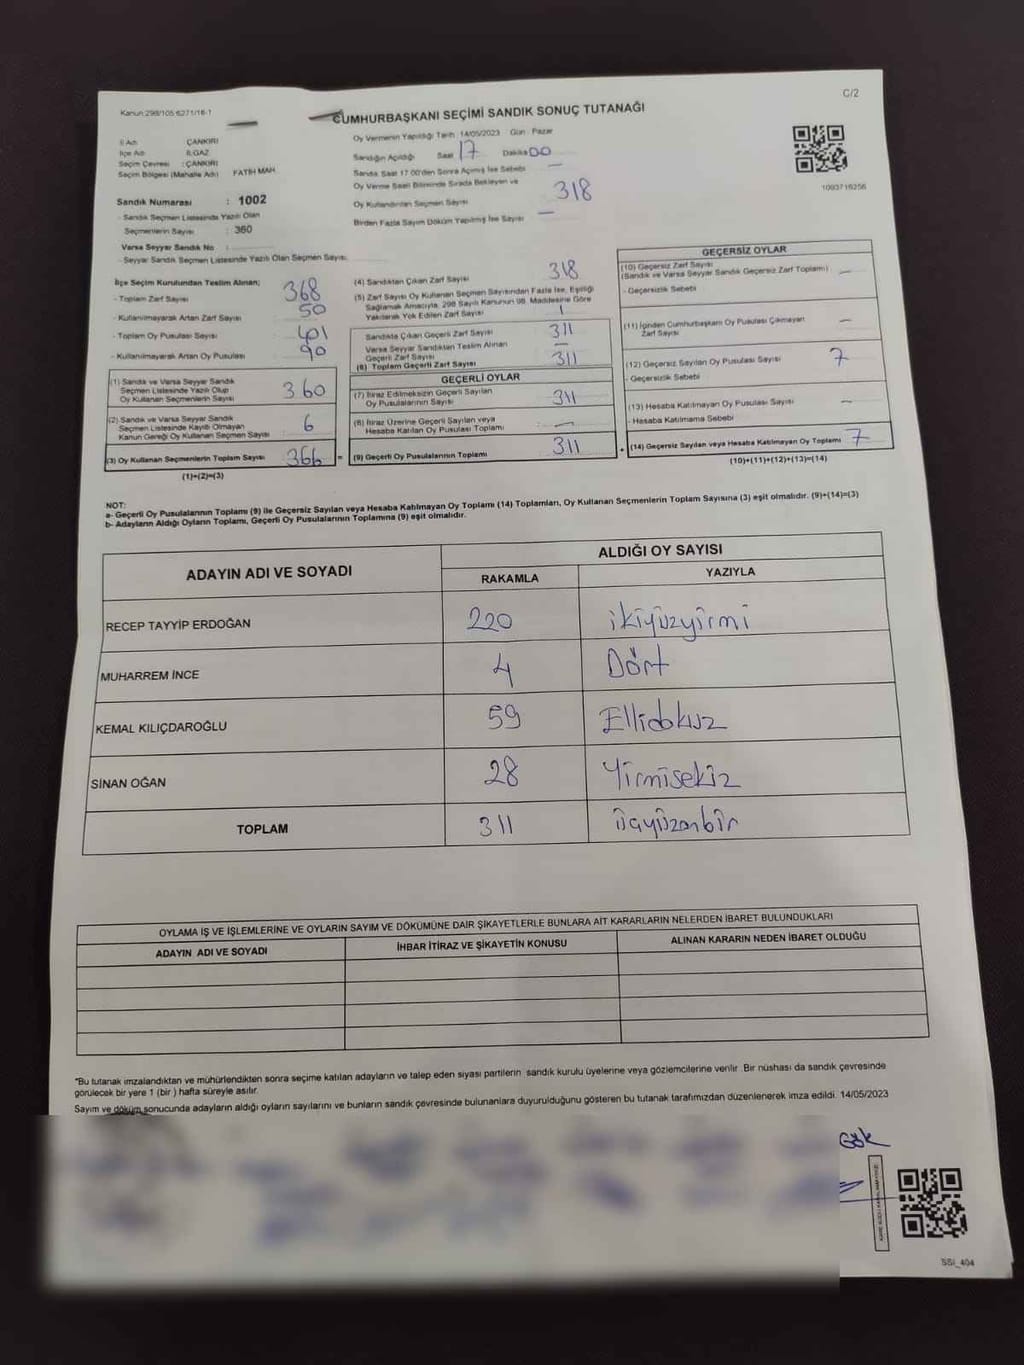 Kanun:298/105 6271/16-1
C/2
CUMHURBAŞKANI SEÇİMİ SANDIK SONUÇ TUTANAĞI
İl Adı : ÇANKIRI
İlçe Adı : ILGAZ
Seçim Çevresi : ÇANKIRI
Seçim Bölgesi (Mahalle Adı) FATİH MAH.
Sandık Numarası : 1002
- Sandık Seçmen Listesinde Yazılı Olan
Seçmenlerin Sayısı : 360
Varsa Seyyar Sandık No :
- Seyyar Sandık Seçmen Listesinde Yazılı Olan Seçmen Sayısı:
Oy Vermenin Yapıldığı Tarih :14/05/2023 Gün : Pazar
Sandığın Açıldığı Saat 17 Dakika 00
Sandık Saat 17.00'den Sonra Açılmış İse Sebebi —
Oy Verme Saati Bitiminde Sırada Bekleyen ve
Oy Kullandırılan Seçmen Sayısı 318
Birden Fazla Sayım Döküm Yapılmış İse Sayısı —
1093716256
İlçe Seçim Kurulundan Teslim Alınan;
- Toplam Zarf Sayısı 368
- Kullanılmayarak Artan Zarf Sayısı 50
- Toplam Oy Pusulası Sayısı 401
- Kullanılmayarak Artan Oy Pusulası 90
(1) Sandık ve Varsa Seyyar Sandık
Seçmen Listesinde Yazılı Olup
Oy Kullanan Seçmenlerin Sayısı 360
(2) Sandık ve Varsa Seyyar Sandık
Seçmen Listesinde Kayıtlı Olmayan
Kanun Gereği Oy Kullanan Seçmen Sayısı 6
(3) Oy Kullanan Seçmenlerin Toplam Sayısı 366 =
(1)+(2)=(3)
(4) Sandıktan Çıkan Zarf Sayısı 318
(5) Zarf Sayısı Oy Kullanan Seçmen Sayısından Fazla İse, Eşitliği
Sağlamak Amacıyla, 298 Sayılı Kanunun 98. Maddesine Göre
Yakılarak Yok Edilen Zarf Sayısı
Sandıkta Çıkan Geçerli Zarf Sayısı 311
Varsa Seyyar Sandıktan Teslim Alınan
Geçerli Zarf Sayısı —
(6) Toplam Geçerli Zarf Sayısı 311
GEÇERLİ OYLAR
(7) İtiraz Edilmeksizin Geçerli Sayılan
Oy Pusulalarının Sayısı 311
(8) İtiraz Üzerine Geçerli Sayılan veya
Hesaba Katılan Oy Pusulası Toplamı —
(9) Geçerli Oy Pusulalarının Toplamı 311 +
GEÇERSİZ OYLAR
(10) Geçersiz Zarf Sayısı
(Sandık ve Varsa Seyyar Sandık Geçersiz Zarf Toplamı) —
- Geçersizlik Sebebi
(11) İçinden Cumhurbaşkanı Oy Pusulası Çıkmayan
Zarf Sayısı —
(12) Geçersiz Sayılan Oy Pusulası Sayısı 7
- Geçersizlik Sebebi
(13) Hesaba Katılmayan Oy Pusulası Sayısı —
- Hesaba Katılmama Sebebi
(14) Geçersiz Sayılan veya Hesaba Katılmayan Oy Toplamı 7
(10)+(11)+(12)+(13)=(14)
NOT:
a- Geçerli Oy Pusulalarının Toplamı (9) ile Geçersiz Sayılan veya Hesaba Katılmayan Oy Toplamı (14) Toplamları, Oy Kullanan Seçmenlerin Toplam Sayısına (3) eşit olmalıdır. (9)+(14)=(3)
b- Adayların Aldığı Oyların Toplamı, Geçerli Oy Pusulalarının Toplamına (9) eşit olmalıdır.
ADAYIN ADI VE SOYADI ALDIĞI OY SAYISI
RAKAMLA YAZIYLA
RECEP TAYYİP ERDOĞAN 220 ikiyüzyirmi
MUHARREM İNCE 4 Dört
KEMAL KILIÇDAROĞLU 59 Ellidokuz
SİNAN OĞAN 28 Yirmisekiz
TOPLAM 311 üçyüzonbir
OYLAMA İŞ VE İŞLEMLERİNE VE OYLARIN SAYIM VE DÖKÜMÜNE DAİR ŞİKAYETLERLE BUNLARA AİT KARARLARIN NELERDEN İBARET BULUNDUKLARI
ADAYIN ADI VE SOYADI İHBAR İTİRAZ VE ŞİKAYETİN KONUSU ALINAN KARARIN NEDEN İBARET OLDUĞU
*Bu tutanak imzalandıktan ve mühürlendikten sonra seçime katılan adayların ve talep eden siyasi partilerin sandık kurulu üyelerine veya gözlemcilerine verilir. Bir nüshası da sandık çevresinde
görülecek bir yere 1 (bir ) hafta süreyle asılır.
Sayım ve döküm sonucunda adayların aldığı oyların sayılarını ve bunların sandık çevresinde bulunanlara duyurulduğunu gösteren bu tutanak tarafımızdan düzenlenerek imza edildi. 14/05/2023
Gök
SSI_404